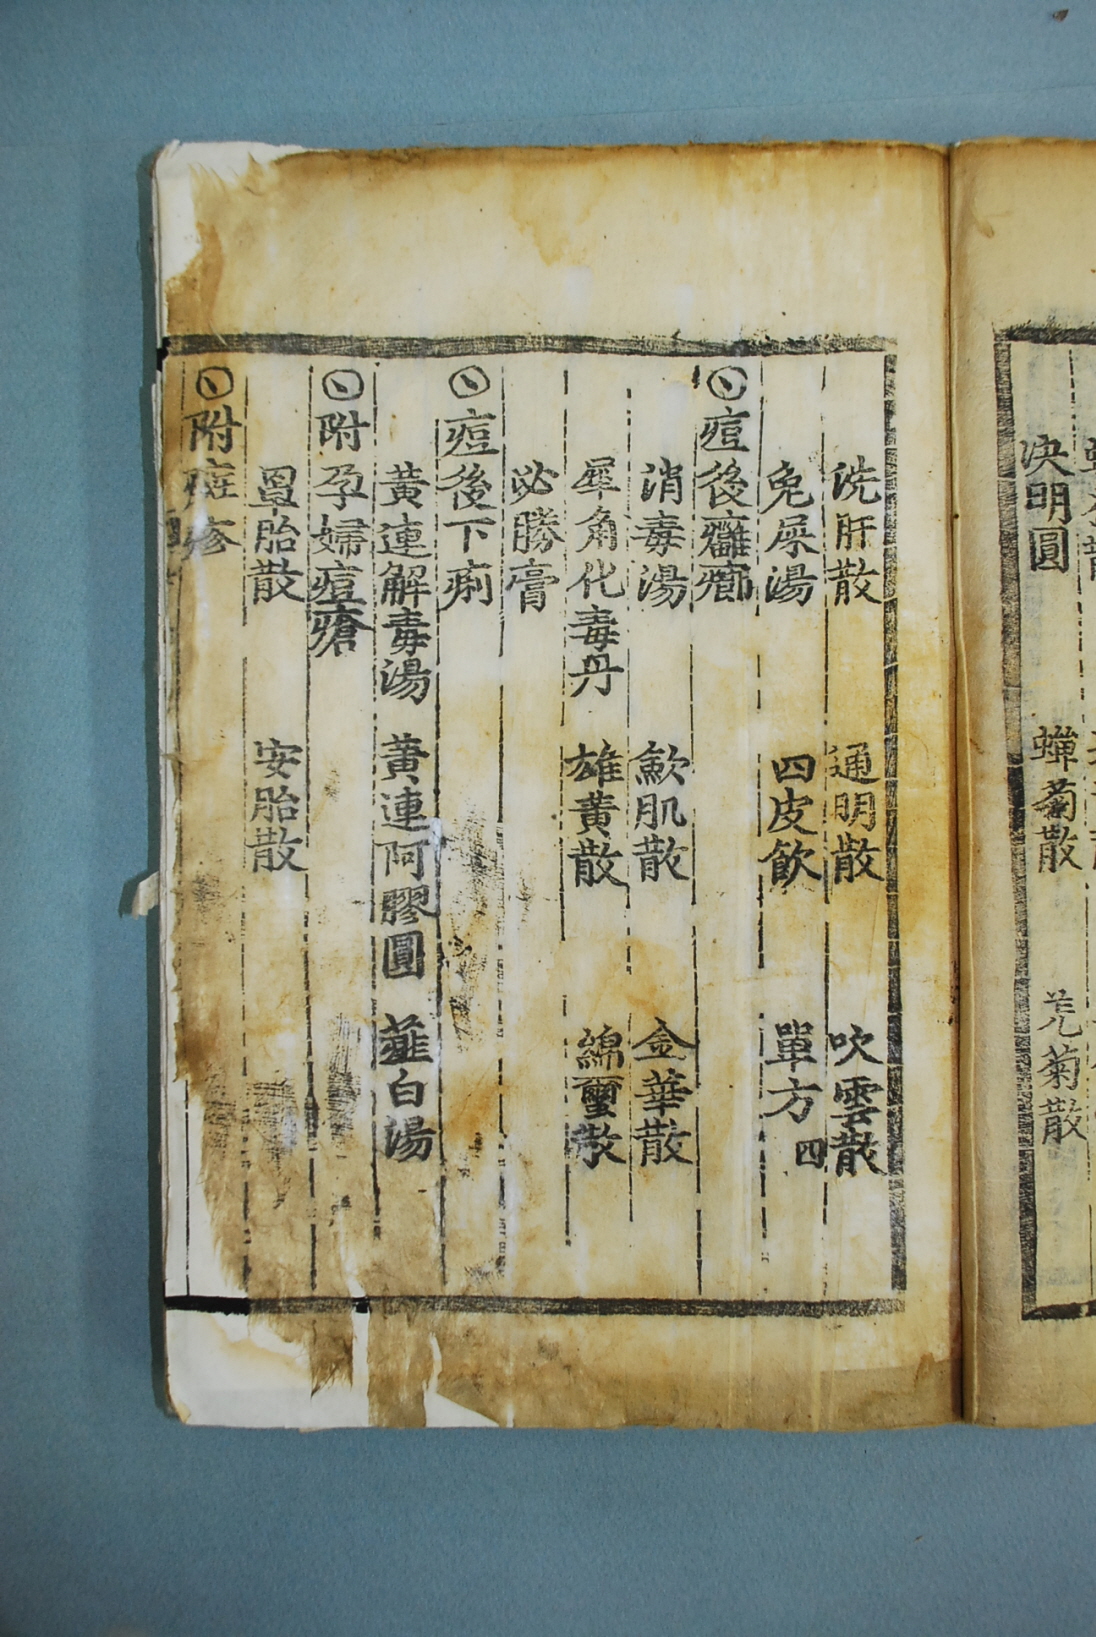 決明圓 蟬菊散 羌菊散
洗肝散 通明散 吹雲散
兔屎湯 四皮飮 單方四
痘後癰癤
消毒湯 歛肌散 金華散
犀角化毒丹 雄黃散 綿璽散
必勝膏
痘後下痢
黃連解毒湯 黃連阿膠圓 薤白湯
附孕婦痘瘡
罩胎散 安胎散
附疹